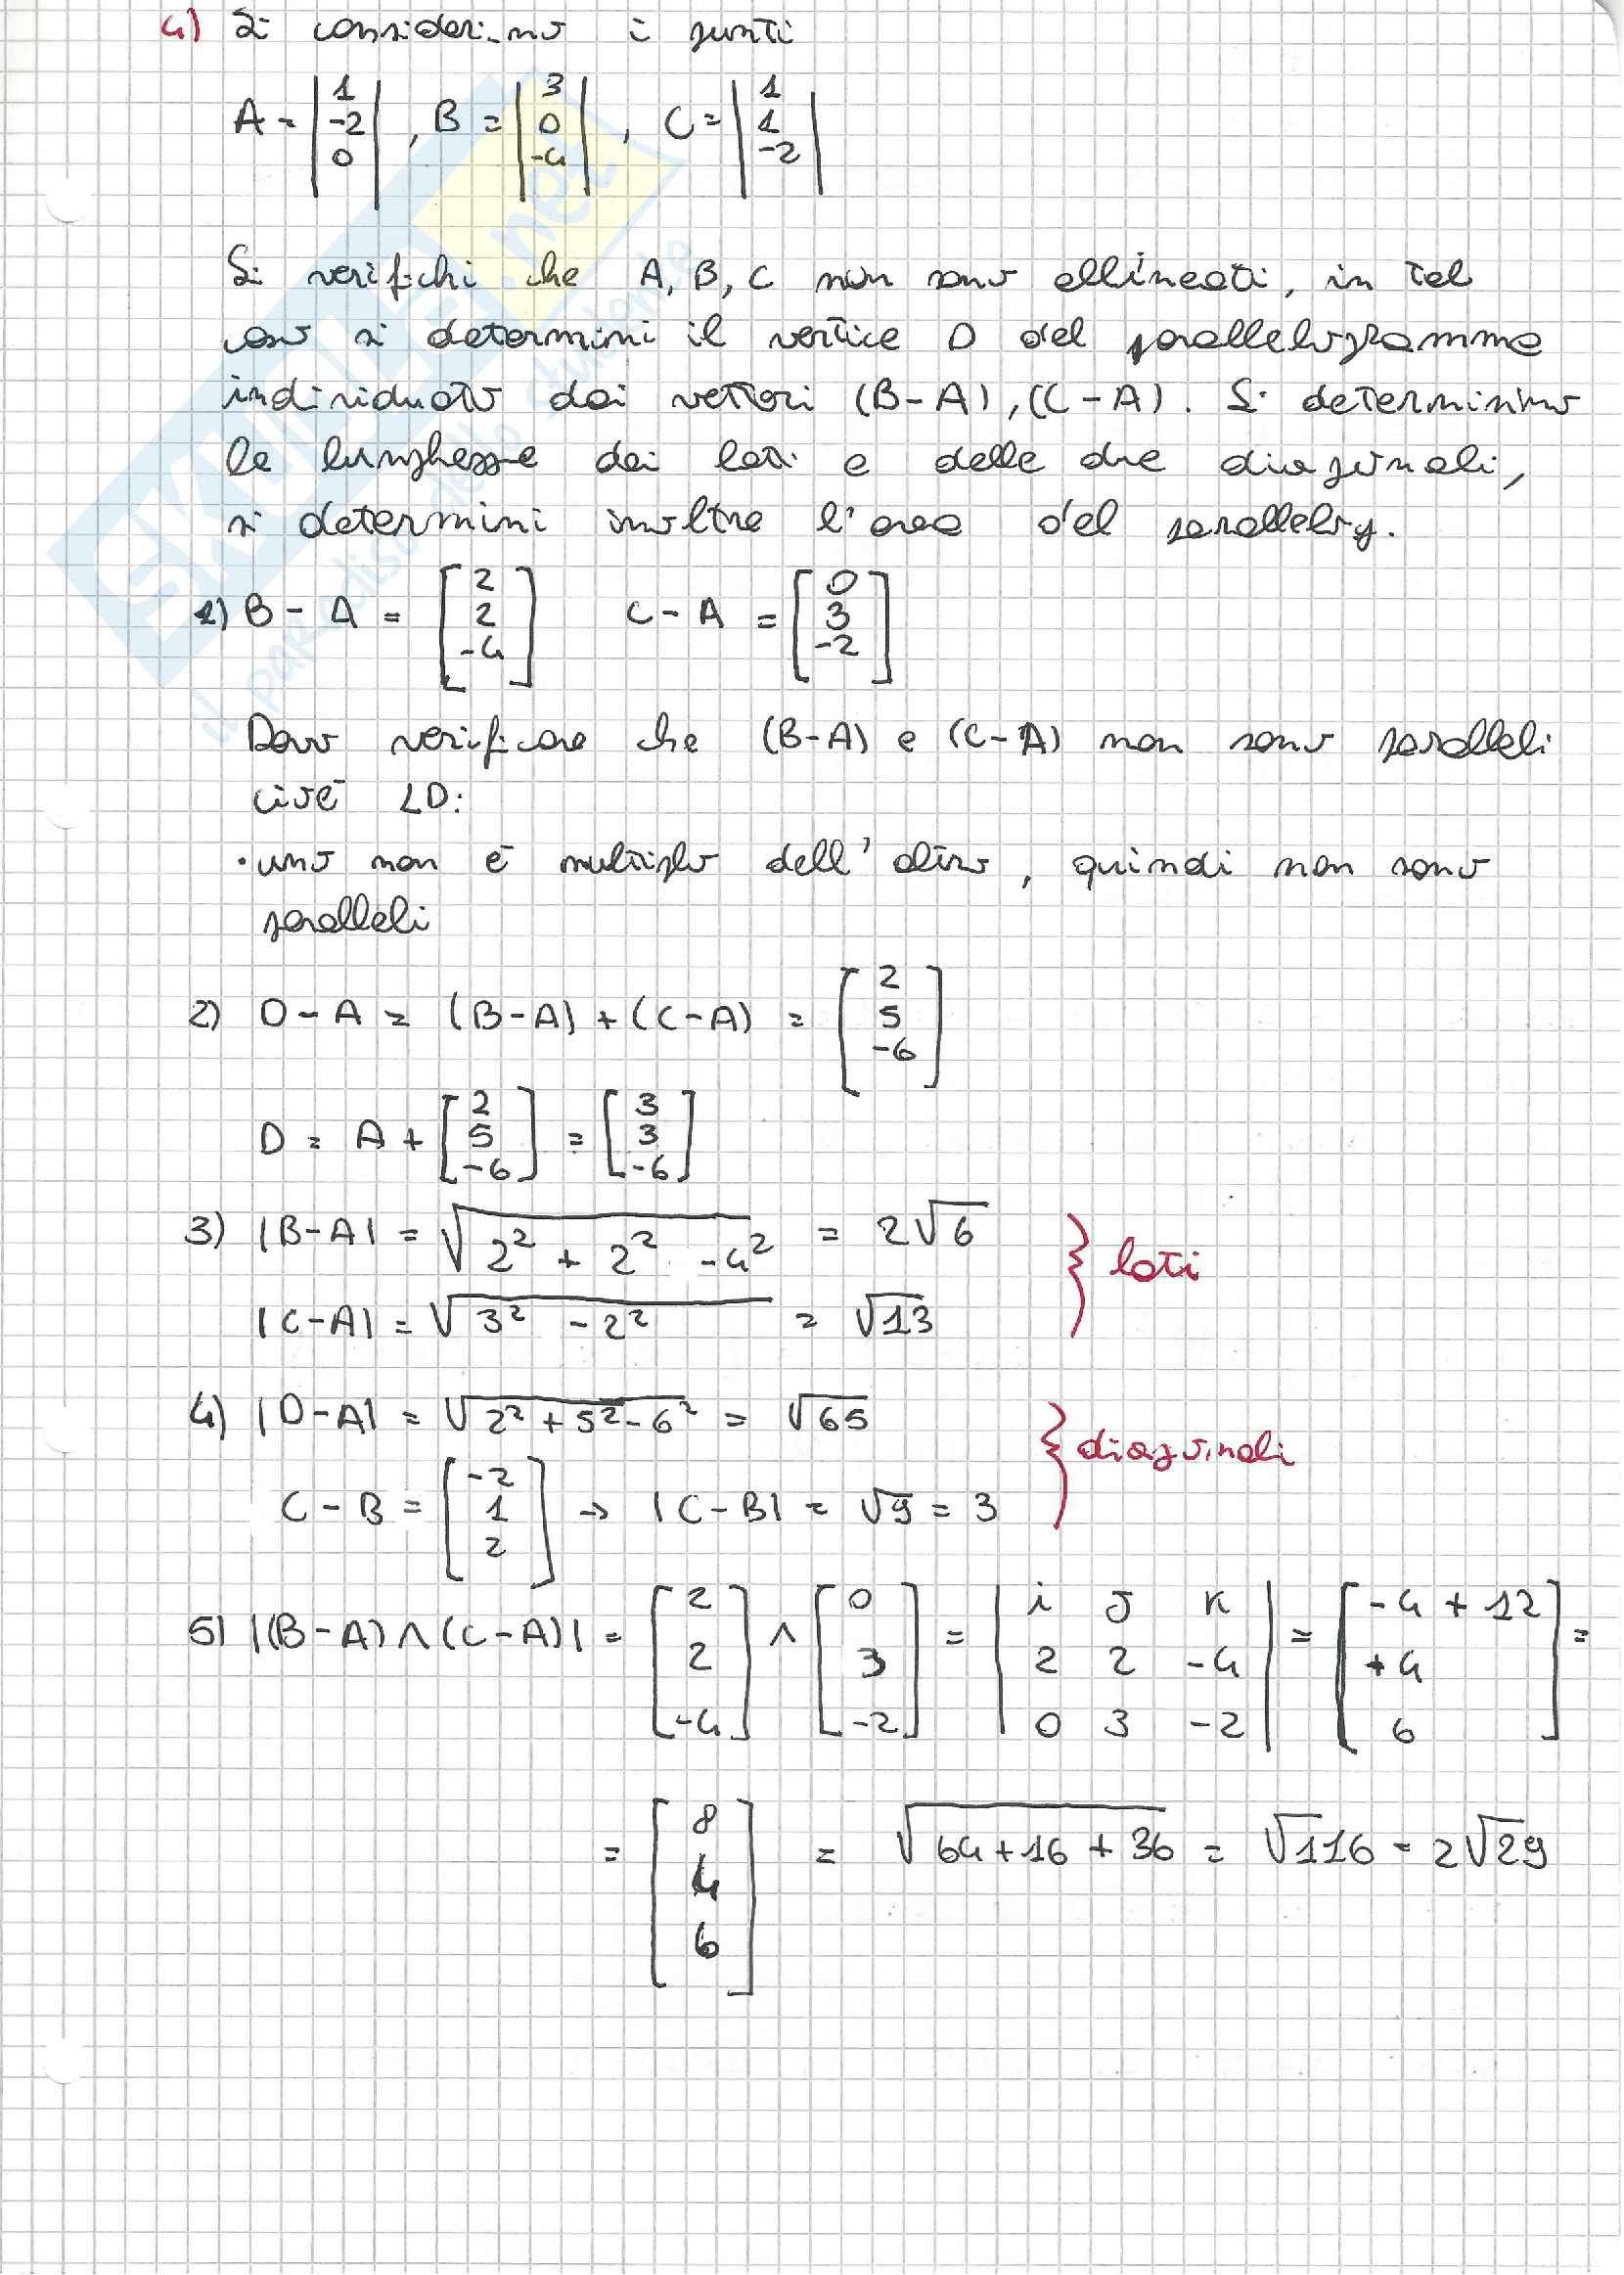 4) Si considerino i punti
A = |1 -2 0| , B = |3 0 -4| , C = |1 1 -2|
Si verifichi che A, B, C non sono allineati, in tal
caso si determini il vertice D del parallelogramma
individuato dai vettori (B-A), (C-A). Si determinino
le lunghezze dei lati e delle due diagonali,
si determini inoltre l'area del parallelog.
1) B - A = [2 2 -4] C - A = [0 3 -2]
Devo verificare che (B-A) e (C-A) non sono paralleli
cioè LD:
• uno non è multiplo dell'altro, quindi non sono
paralleli
2) D - A = (B-A) + (C-A) = [2 5 -6]
D = A + [2 5 -6] = [3 3 -6]
3) |B-A| = √(2² + 2² -4²) = 2√6
|C-A| = √(3² -2²) = √13
} lati
4) |D-A| = √(2² + 5² - 6²) = √65
C - B = [-2 1 2] → |C-B| = √9 = 3
} diagonali
5) |(B-A) ∧ (C-A)| = [2 2 -4] ∧ [0 3 -2] = |i j k 2 2 -4 0 3 -2| = [-4 + 12 +4 6] =
= [8 4 6] = √(64 + 16 + 36) = √116 = 2√29
SKUOLA.net
il paradiso dello studente